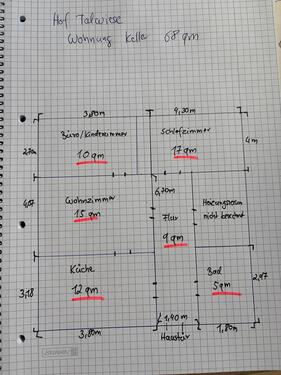 Hof Talwiese
Wohnung Keller 68 qm
3,80m
4,30m
Büro/Kinderzimmer
Schlafzimmer
2,70m
10 qm
17 qm
4m
6,70m
4,07
Wohnzimmer
15 qm
Flur
Heizungsraum
nicht berechnet
9 qm
Küche
Bad
3,18
12 qm
5qm
2,97
1,40m
3,80m
Haustür
1,80m